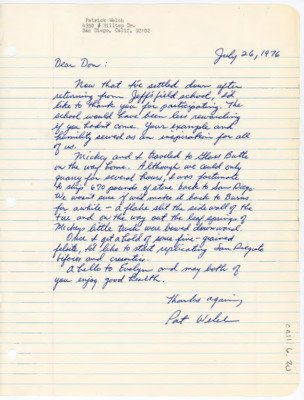 Patrick Welch
July 26, 1976
Dear Don:
Now that I've settled down after
returning from Jeff's field school, I'd
like to thank you for participating. The
school would have been less rewarding
if you hadn't come. Your example and
humility served as an inspiration for all
of us.
Mickey and I traveled to Glass Butte
on the way home. Although we could only
quarry for several hours, I was fortunate
to ship 670 pounds of stone back to San Diego.
We weren't sure if we'd make it back to Burns
for awhile - a flake slit the side wall of the
tire and on the way out the leaf springs of
Mickey's little truck was bowed downward.
Once I get ahold of some fine-grained
felsite, I'd like to start replicating San Dieguito
bifaces and crescentics.
A hello to Evelyn and may both of
you enjoy good health.
Thanks again,
Pat Welch